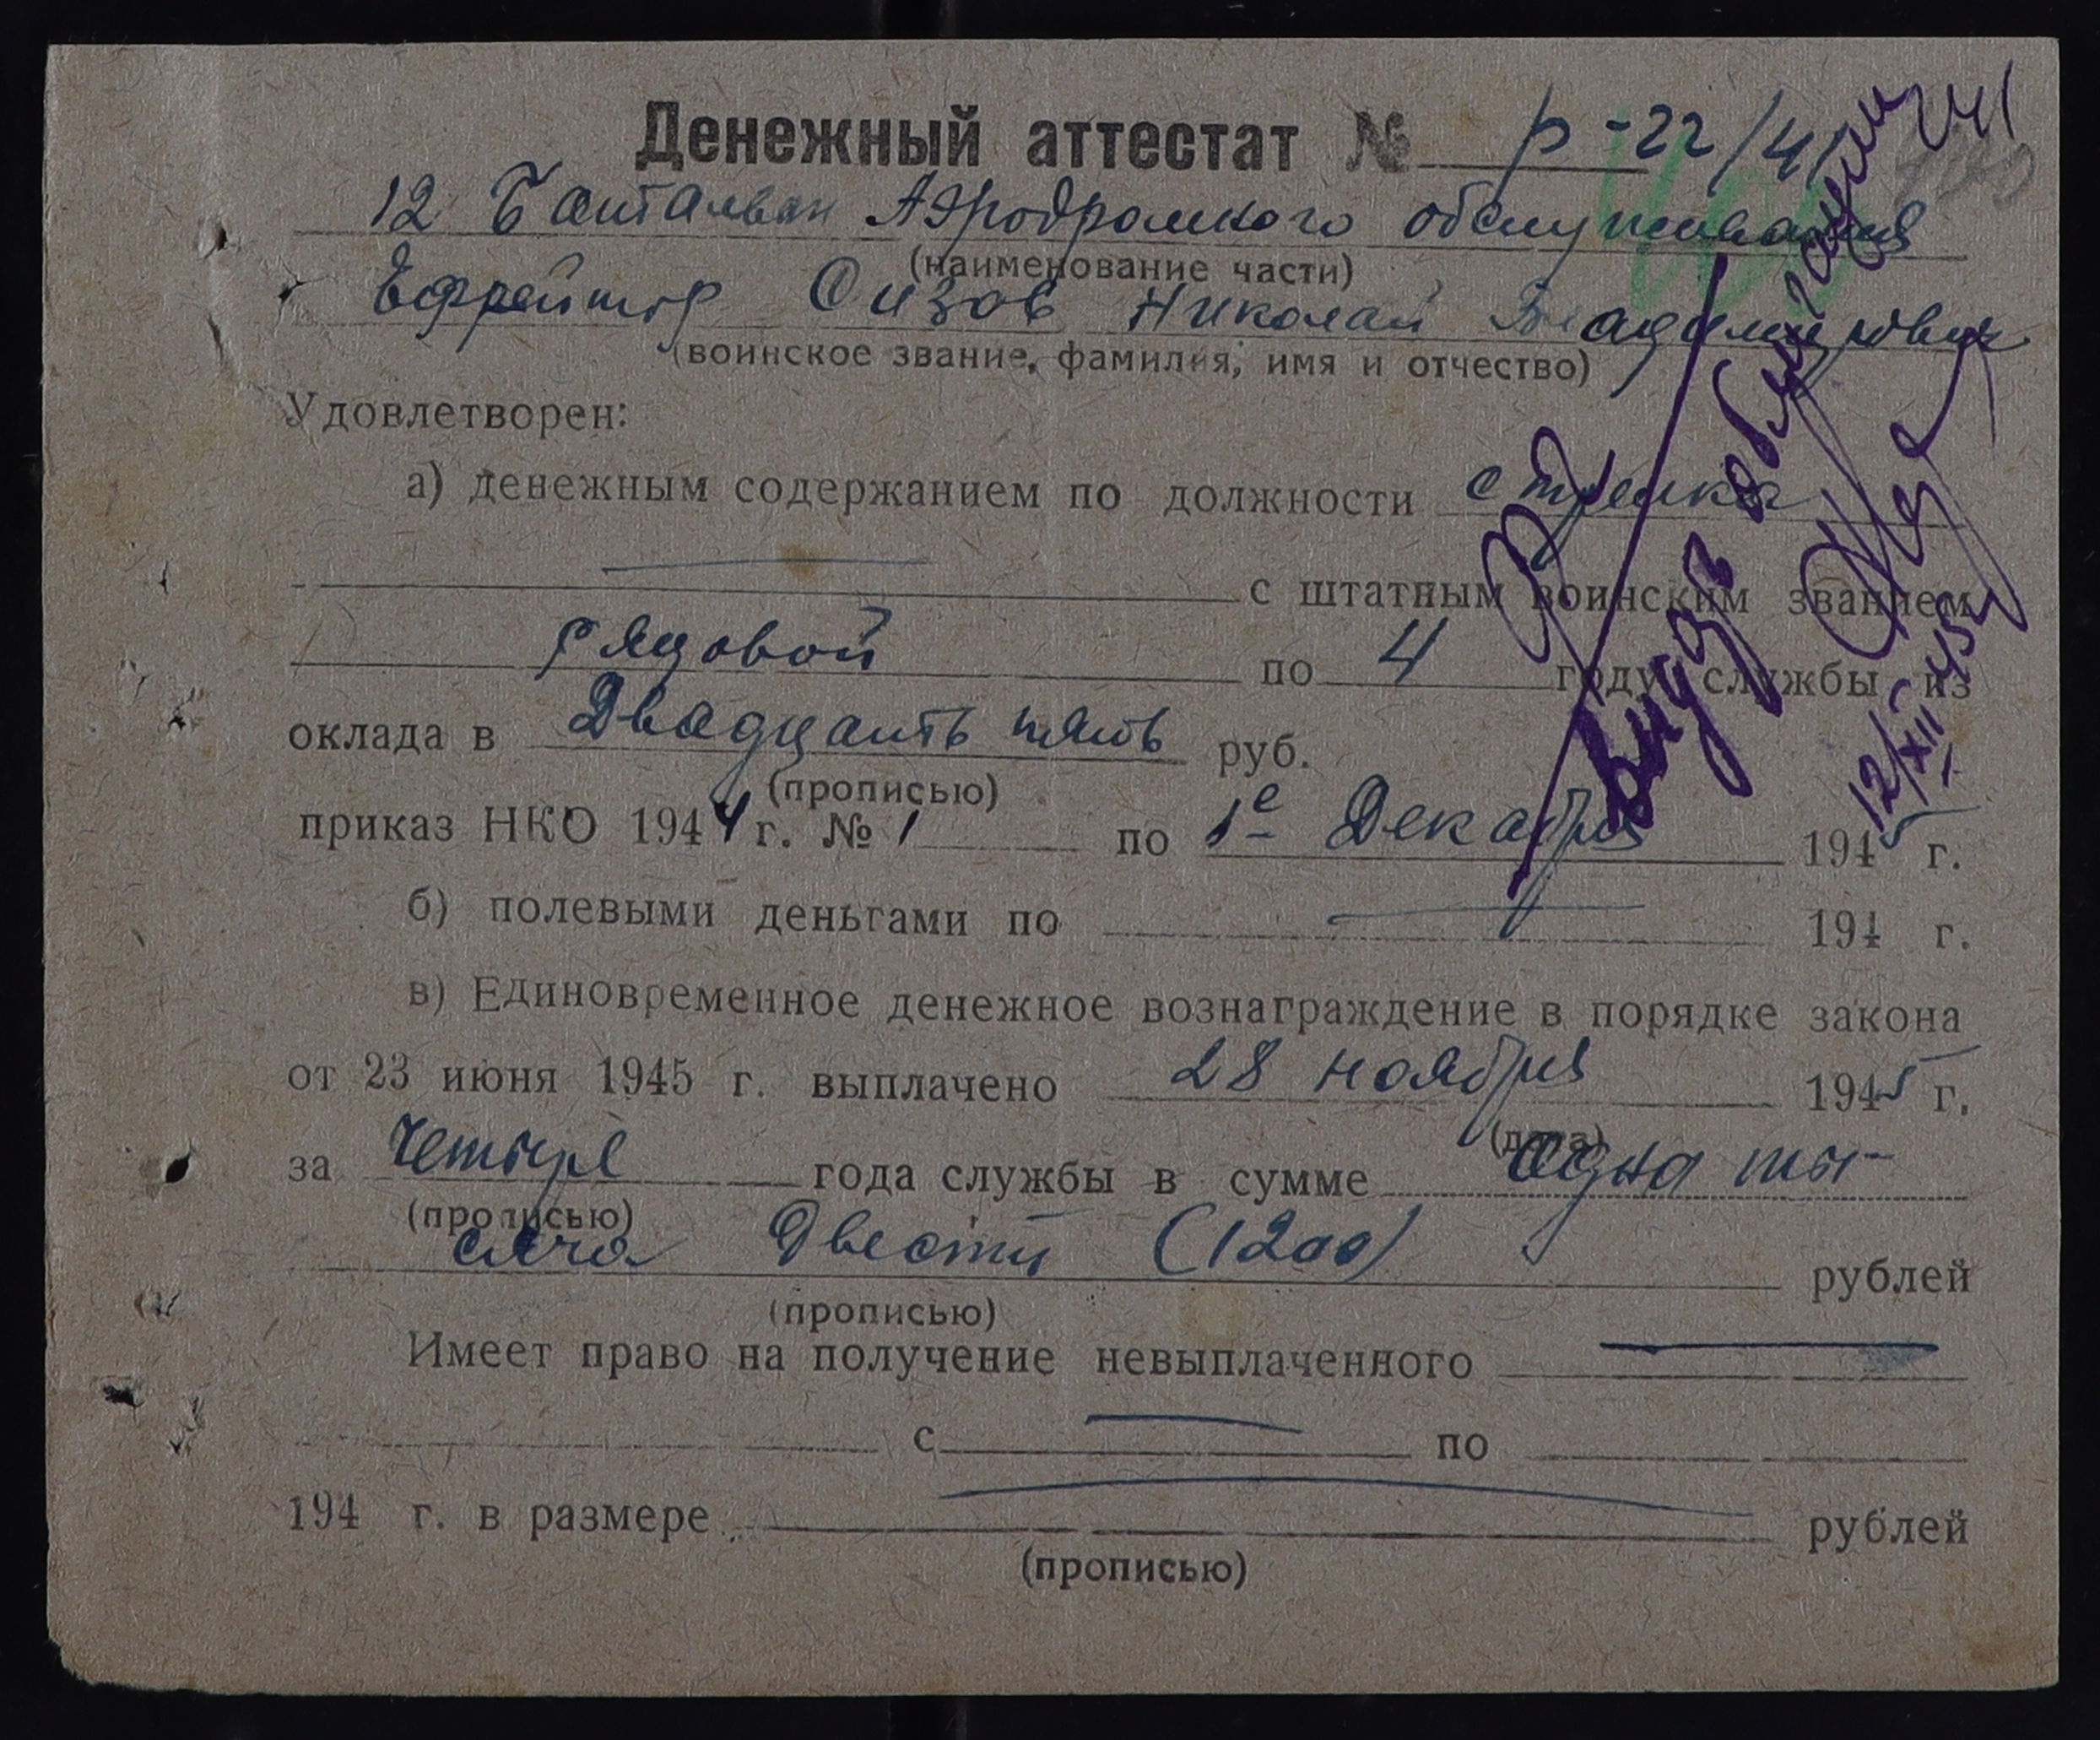 Денежный аттестат № р-22/41
12 Батальон Аэродромного обслуживания
(наименование части)
Ефрейтор Сизов Николай Владимирович
(воинское звание, фамилия, имя и отчество)
Удовлетворен:
а) денежным содержанием по должности стрелка
с штатным воинским званием
рядовой по 4 году службы из
оклада в Двадцать пять руб.
(прописью)
приказ НКО 1944 г. № 1 по 1е Декабря 1945 г.
б) полевыми деньгами по 194 г.
в) Единовременное денежное вознаграждение в порядке закона
от 23 июня 1945 г. выплачено 28 ноября 1945 г.
(дата)
за Четыре года службы в сумме одна ты-
(прописью)
сяча Двести (1200) рублей
(прописью)
Имеет право на получение невыплаченного
с по
194 г. в размере рублей
(прописью)
241
12/XII 45